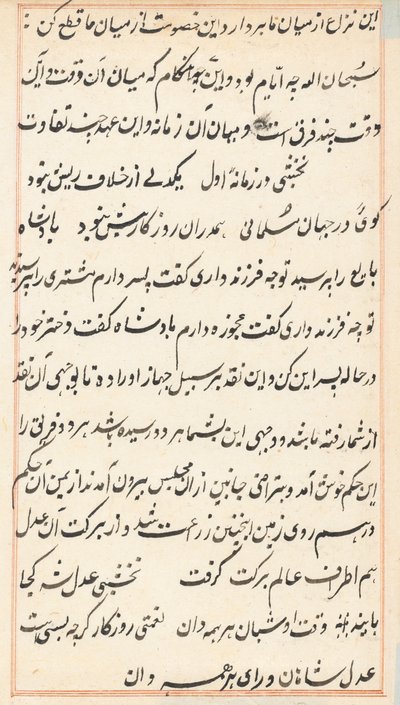 این نزاع از میان ما بردار و این خصومت از میان ما قطع کن
سبحان الله چه ایام بود و این چه هنگام که میان آن وقت و این
وقت چند فرق است و میان آن زمانه و این عهد چند تفاوت
نخشبی در زمانهٔ اول یکدلی از خلاف ریش نبود
کوی در جهان مسلمانی همدران روزگار بیش نبود پادشاه
بایع را پرسید تو چه فرزند داری گفت پسر دارم مشتری را پرسید
تو چه فرزند داری گفت عجوزه دارم پادشاه گفت دختر خود را
در حاله پسر این کن و این نقد بر سبیل جهاز او را ده تا بوجهی آن نقد
از شما رفته باشد و وجهی این بشما هر دو رسیده باشد هر دو فریق را
این حکم خوش آمد و بتراضی جانبین از ان مجلس بیرون آمدند از یمن آن حکم
در همه روی زمین اینچنین زراعت شد و از برکت آن عدل
همه اطراف عالم برکت گرفت نخشبی عدل شه کجا
یابند وقت او شبان هر همه دان نعمتی روزگار کرچه بسی است
عدل شاهان ورای هر همه دان